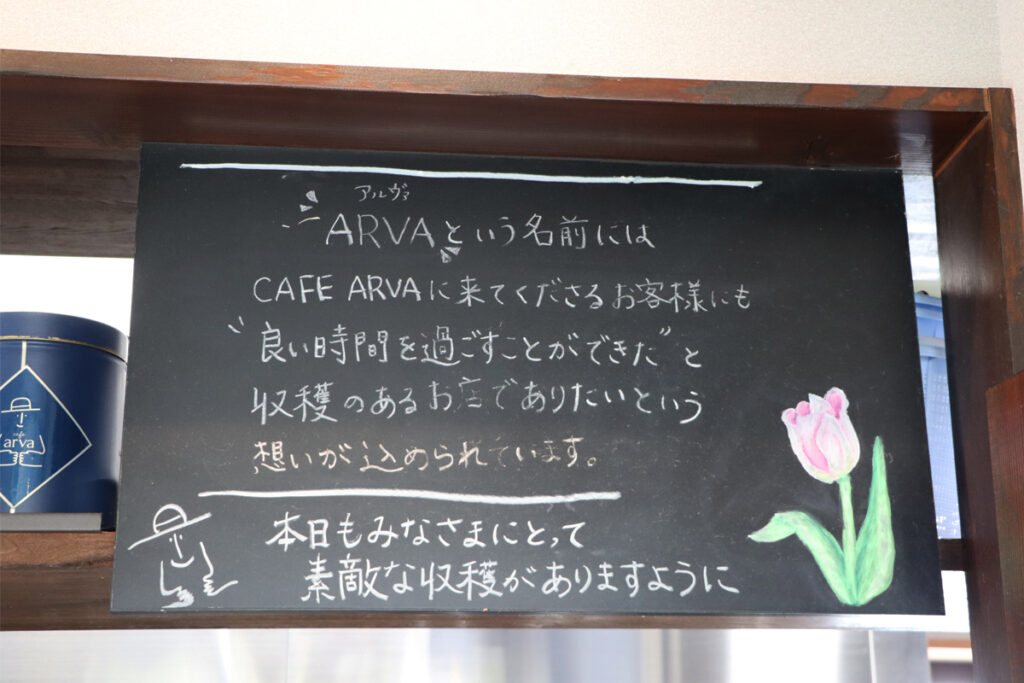 アルヴァ
ARVAという名前には
CAFE ARVAに来てくださるお客様にも
"良い時間を過ごすことができた"と
収穫のあるお店でありたいという
想いが込められています。
本日もみなさまにとって
素敵な収穫がありますように
cafe
arva